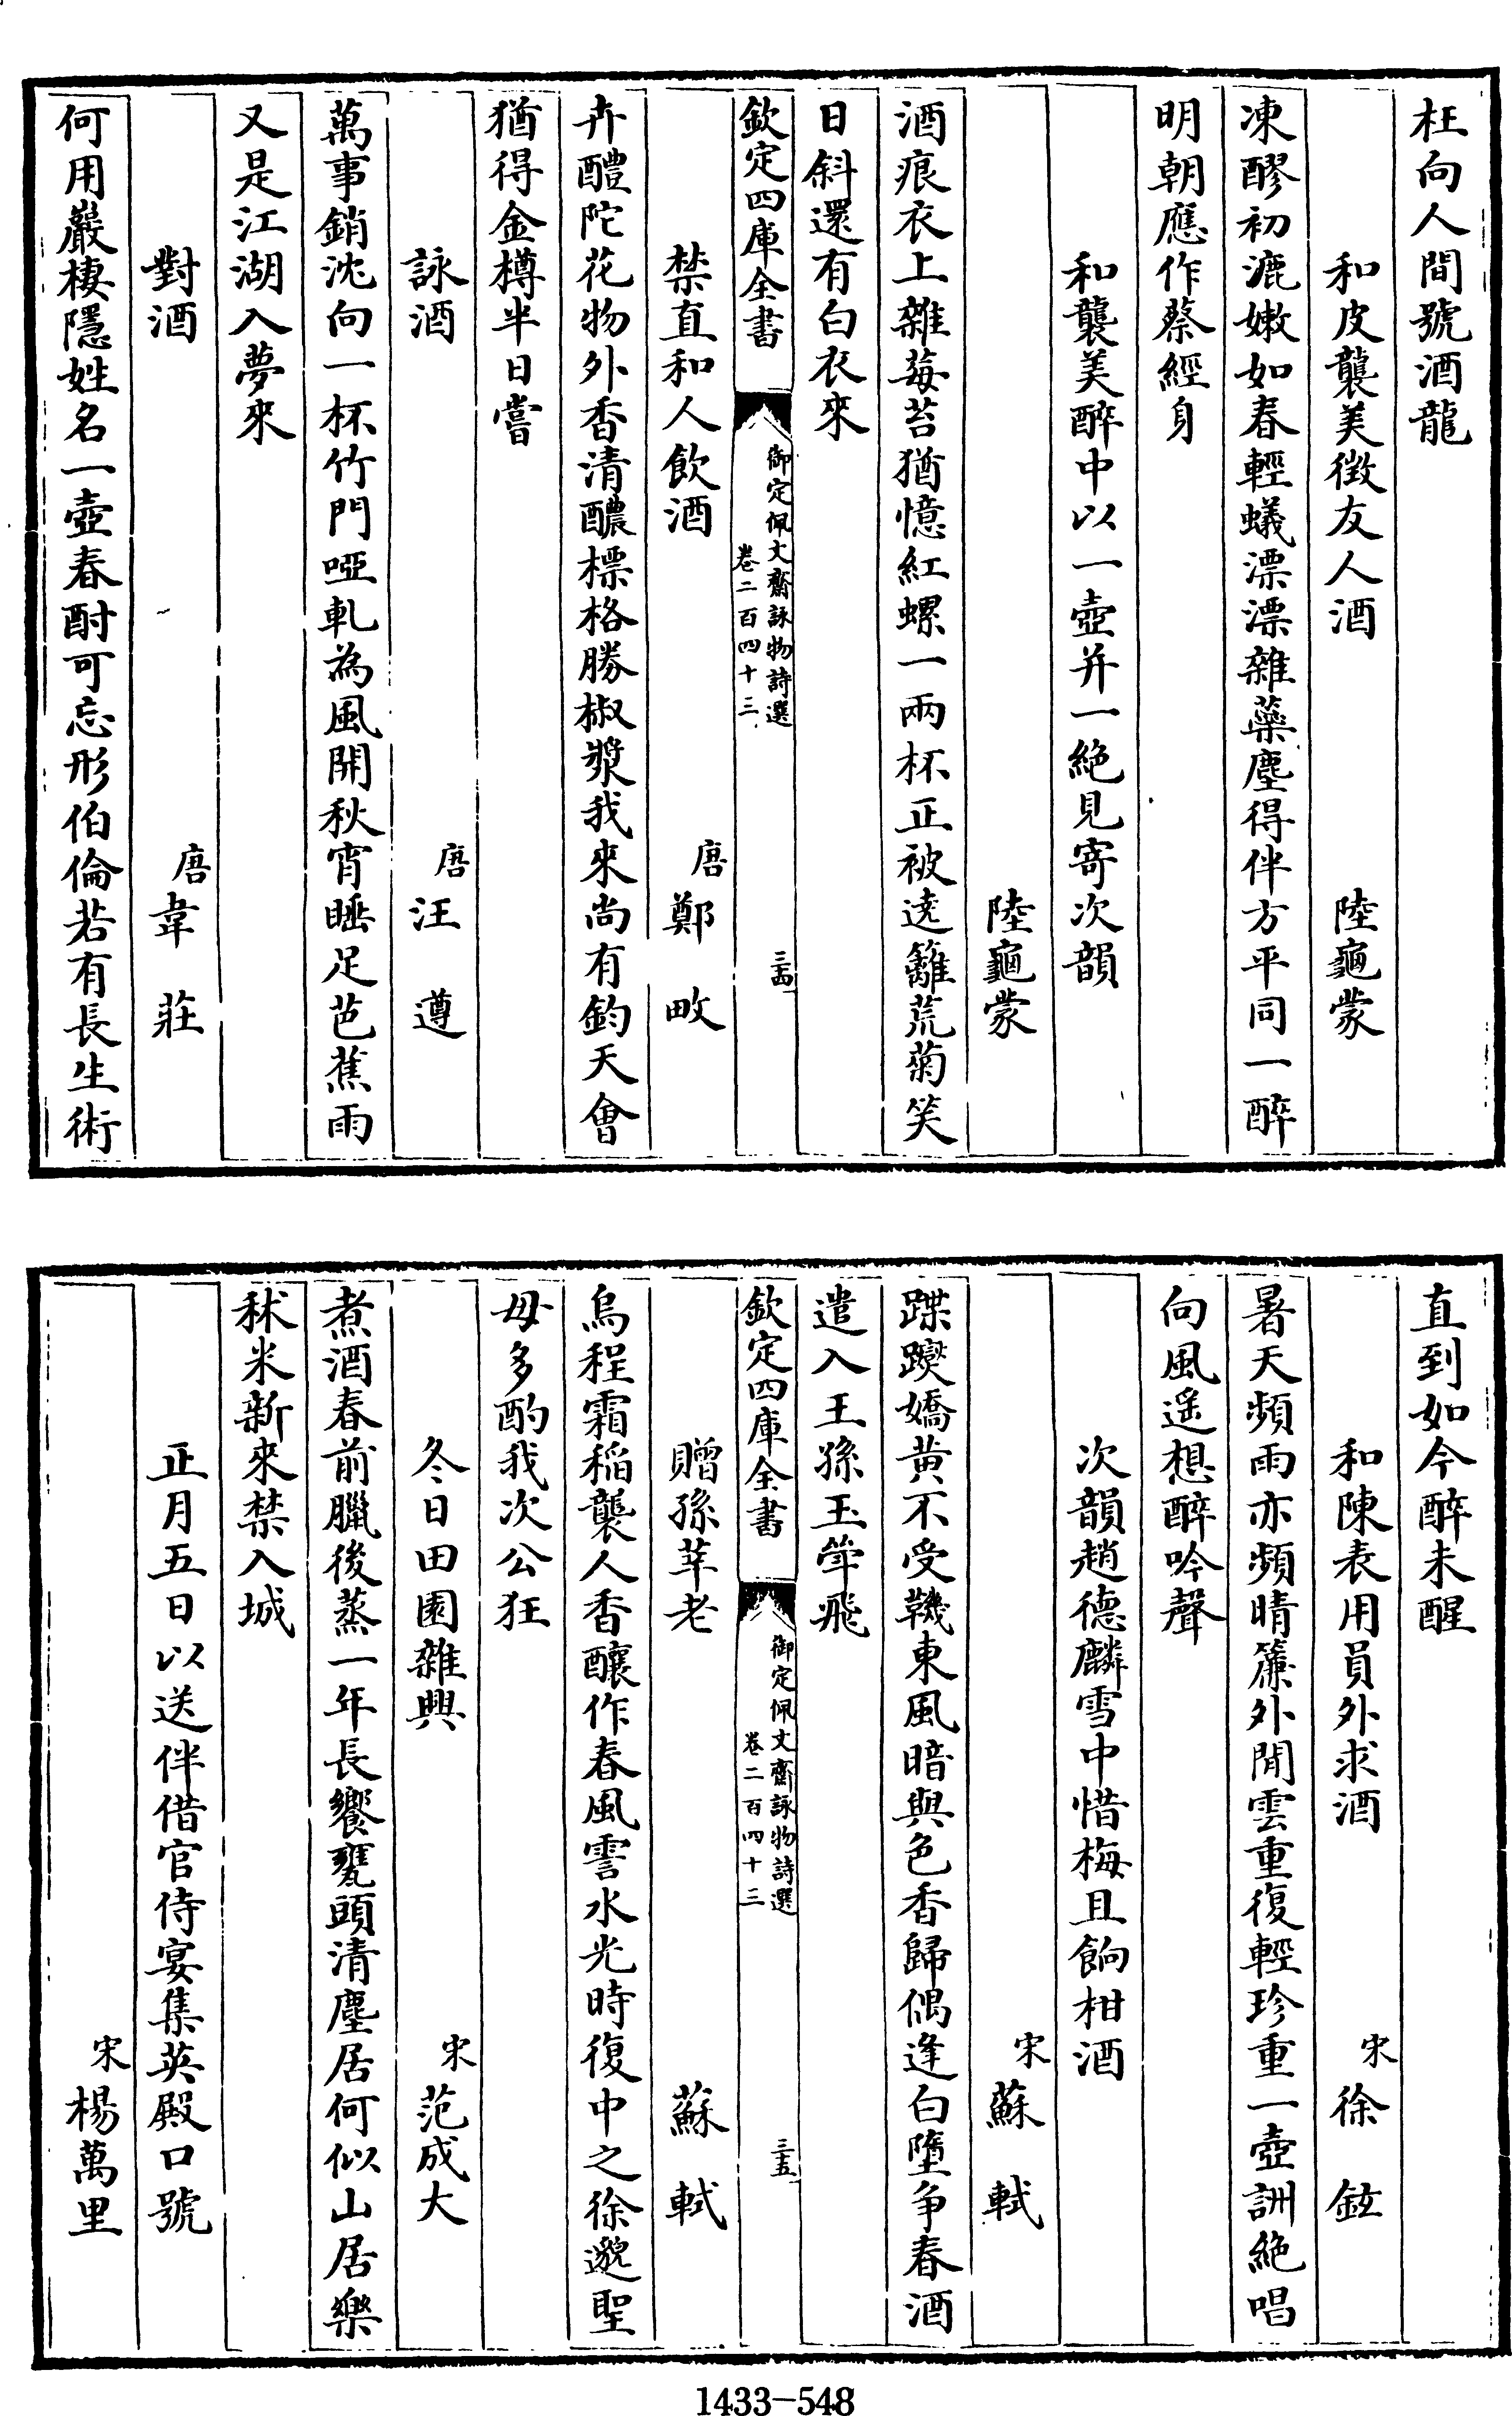 枉向人間號酒龍
和皮襲美徵友人酒 陸龜蒙
凍醪初漉嫩如春輕蟻漂漂雜蘂塵得伴方平同一醉
明朝應作蔡經身
和襲美醉中以一壺并一絶見寄次韻
陸龜蒙
酒痕衣上雜莓苔猶憶紅螺一兩杯正被遶籬荒菊笑
日斜還有白衣來
欽定四庫全書
御定佩文齋詠物詩選
卷二百四十三
三十四
禁直和人飲酒 唐 鄭畋
卉醴陀花物外香清醲標格勝椒漿我來尚有鈞天會
猶得金樽半日嘗
詠酒 唐 汪遵
萬事銷沈向一杯竹門啞軋為風開秋宵睡足芭蕉雨
又是江湖入夢來
對酒 唐 韋莊
何用巖棲隱姓名一壺春酎可忘形伯倫若有長生術
直到如今醉未醒
和陳表用員外求酒 宋 徐鉉
暑天頻雨亦頻晴簾外閒雲重復輕珍重一壺詶絶唱
向風遥想醉吟聲
次韻趙德麟雪中惜梅且餉柑酒
宋 蘇軾
蹀躞嬌黄不受鞿東風暗與色香歸偶逢白墮争春酒
遣入王孫玉斝飛
欽定四庫全書
御定佩文齋詠物詩選
卷二百四十三
三十五
贈孫莘老 蘇軾
烏程霜稻襲人香釀作春風霅水光時復中之徐邈聖
毋多酌我次公狂
冬日田園雜興 宋 范成大
煮酒春前臘後蒸一年長饗甕頭清廛居何似山居樂
秫米新來禁入城
正月五日以送伴借官侍宴集英殿口號
宋 楊萬里
1433-548